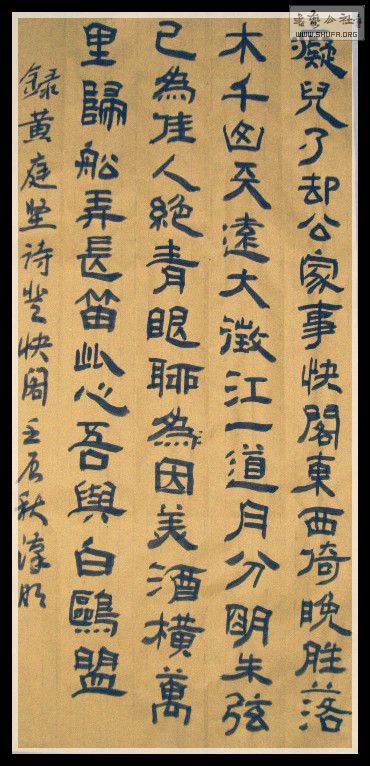 癡兒了却公家事快閣東西倚晚胜落
木千山天遠大澂江一道月分明朱弦
已為佳人絕青眼聊為因美酒橫萬
里歸船弄長笛此心吾與白鷗盟
錄黃庭坚诗登快閣壬辰秋
公社
WWW.SHUFA.ORG